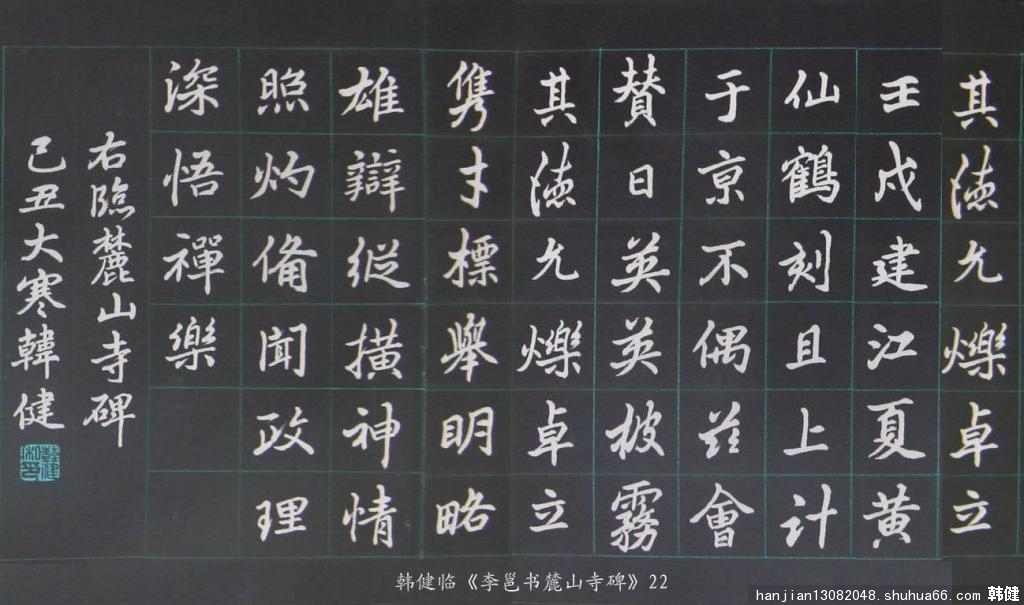 其德允爍卓立
壬戌建江夏黄
仙鶴刻且上計
于京不偶兹會
賛曰英英披霧
其德允爍卓立
隽才標舉明略
雄辯縱橫神情
照灼備聞政理
深悟禪樂
右臨麓山寺碑
己丑大寒韓健
韩健临《李邕书麓山寺碑》22
hanjian13082048.shuhua66.com 韩健